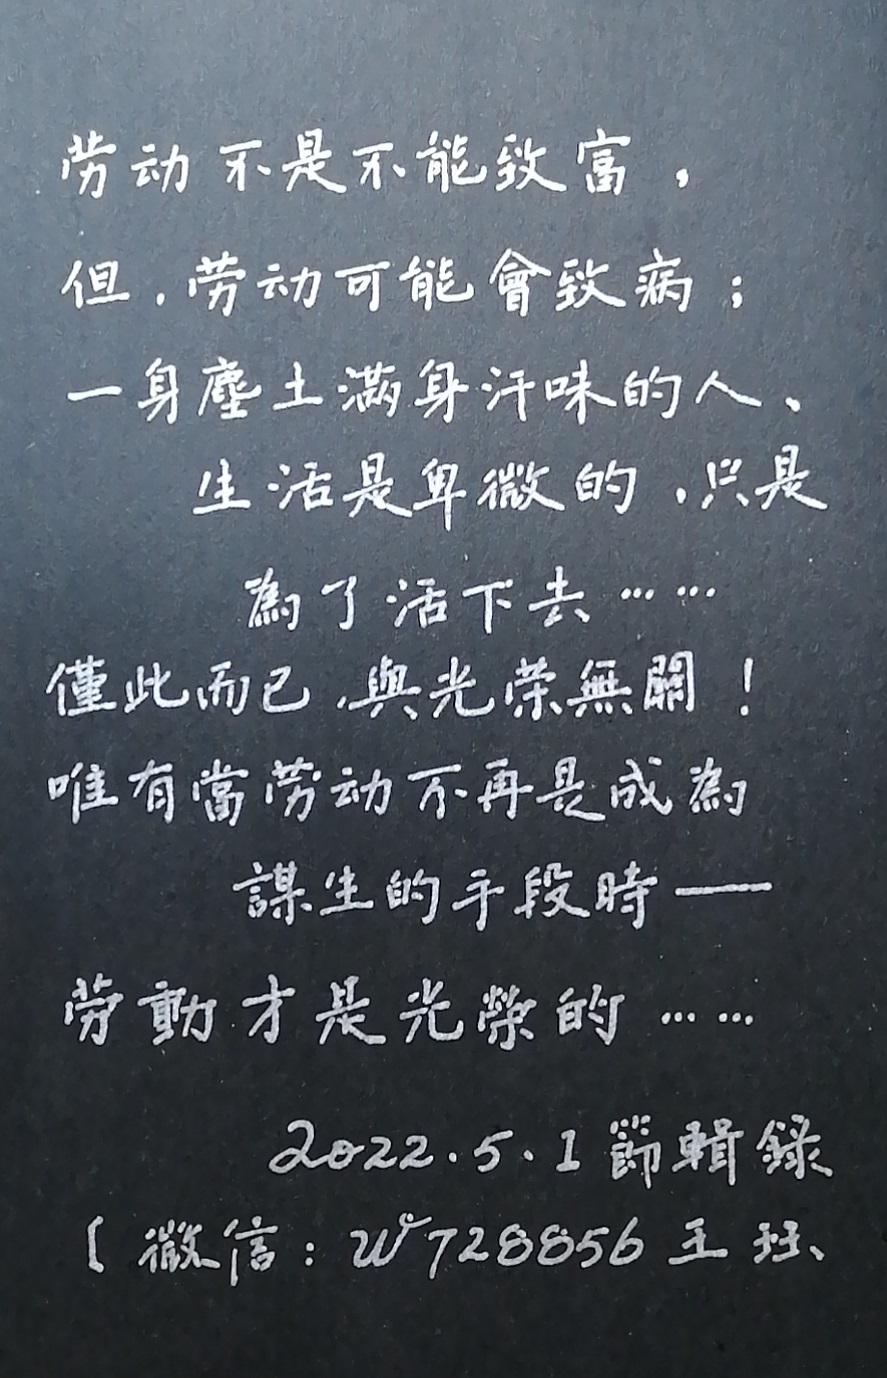 劳动不是不能致富，
但，劳动可能會致病；
一身塵土滿身汗味的人、
生活是卑微的，只是
為了活下去……
僅此而已，與光荣無關！
唯有當劳动不再是成為
謀生的手段時——
劳動才是光榮的……
2022.5.1節輯錄
[微信：W728856 王班、